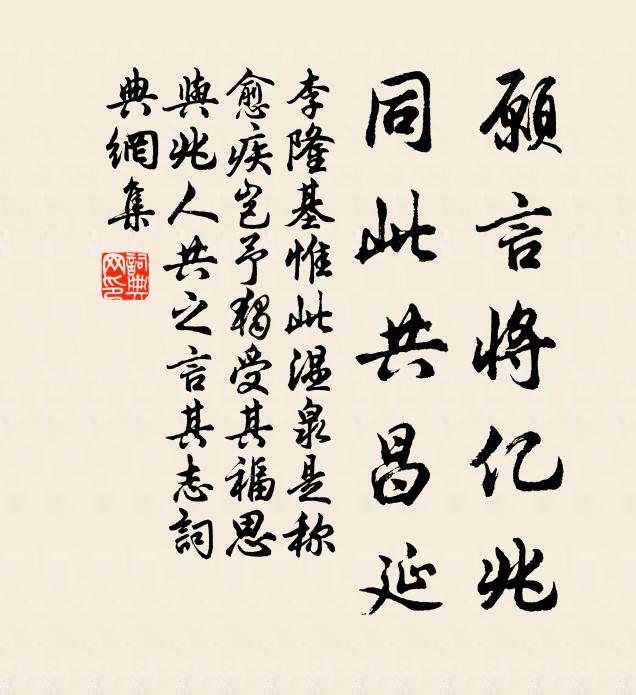 願言將亿兆
同此共昌延
李隆基惟此温泉是称
愈疾岂予獨受其福思
與兆人共之言其志詞
典網集
詞典
网印